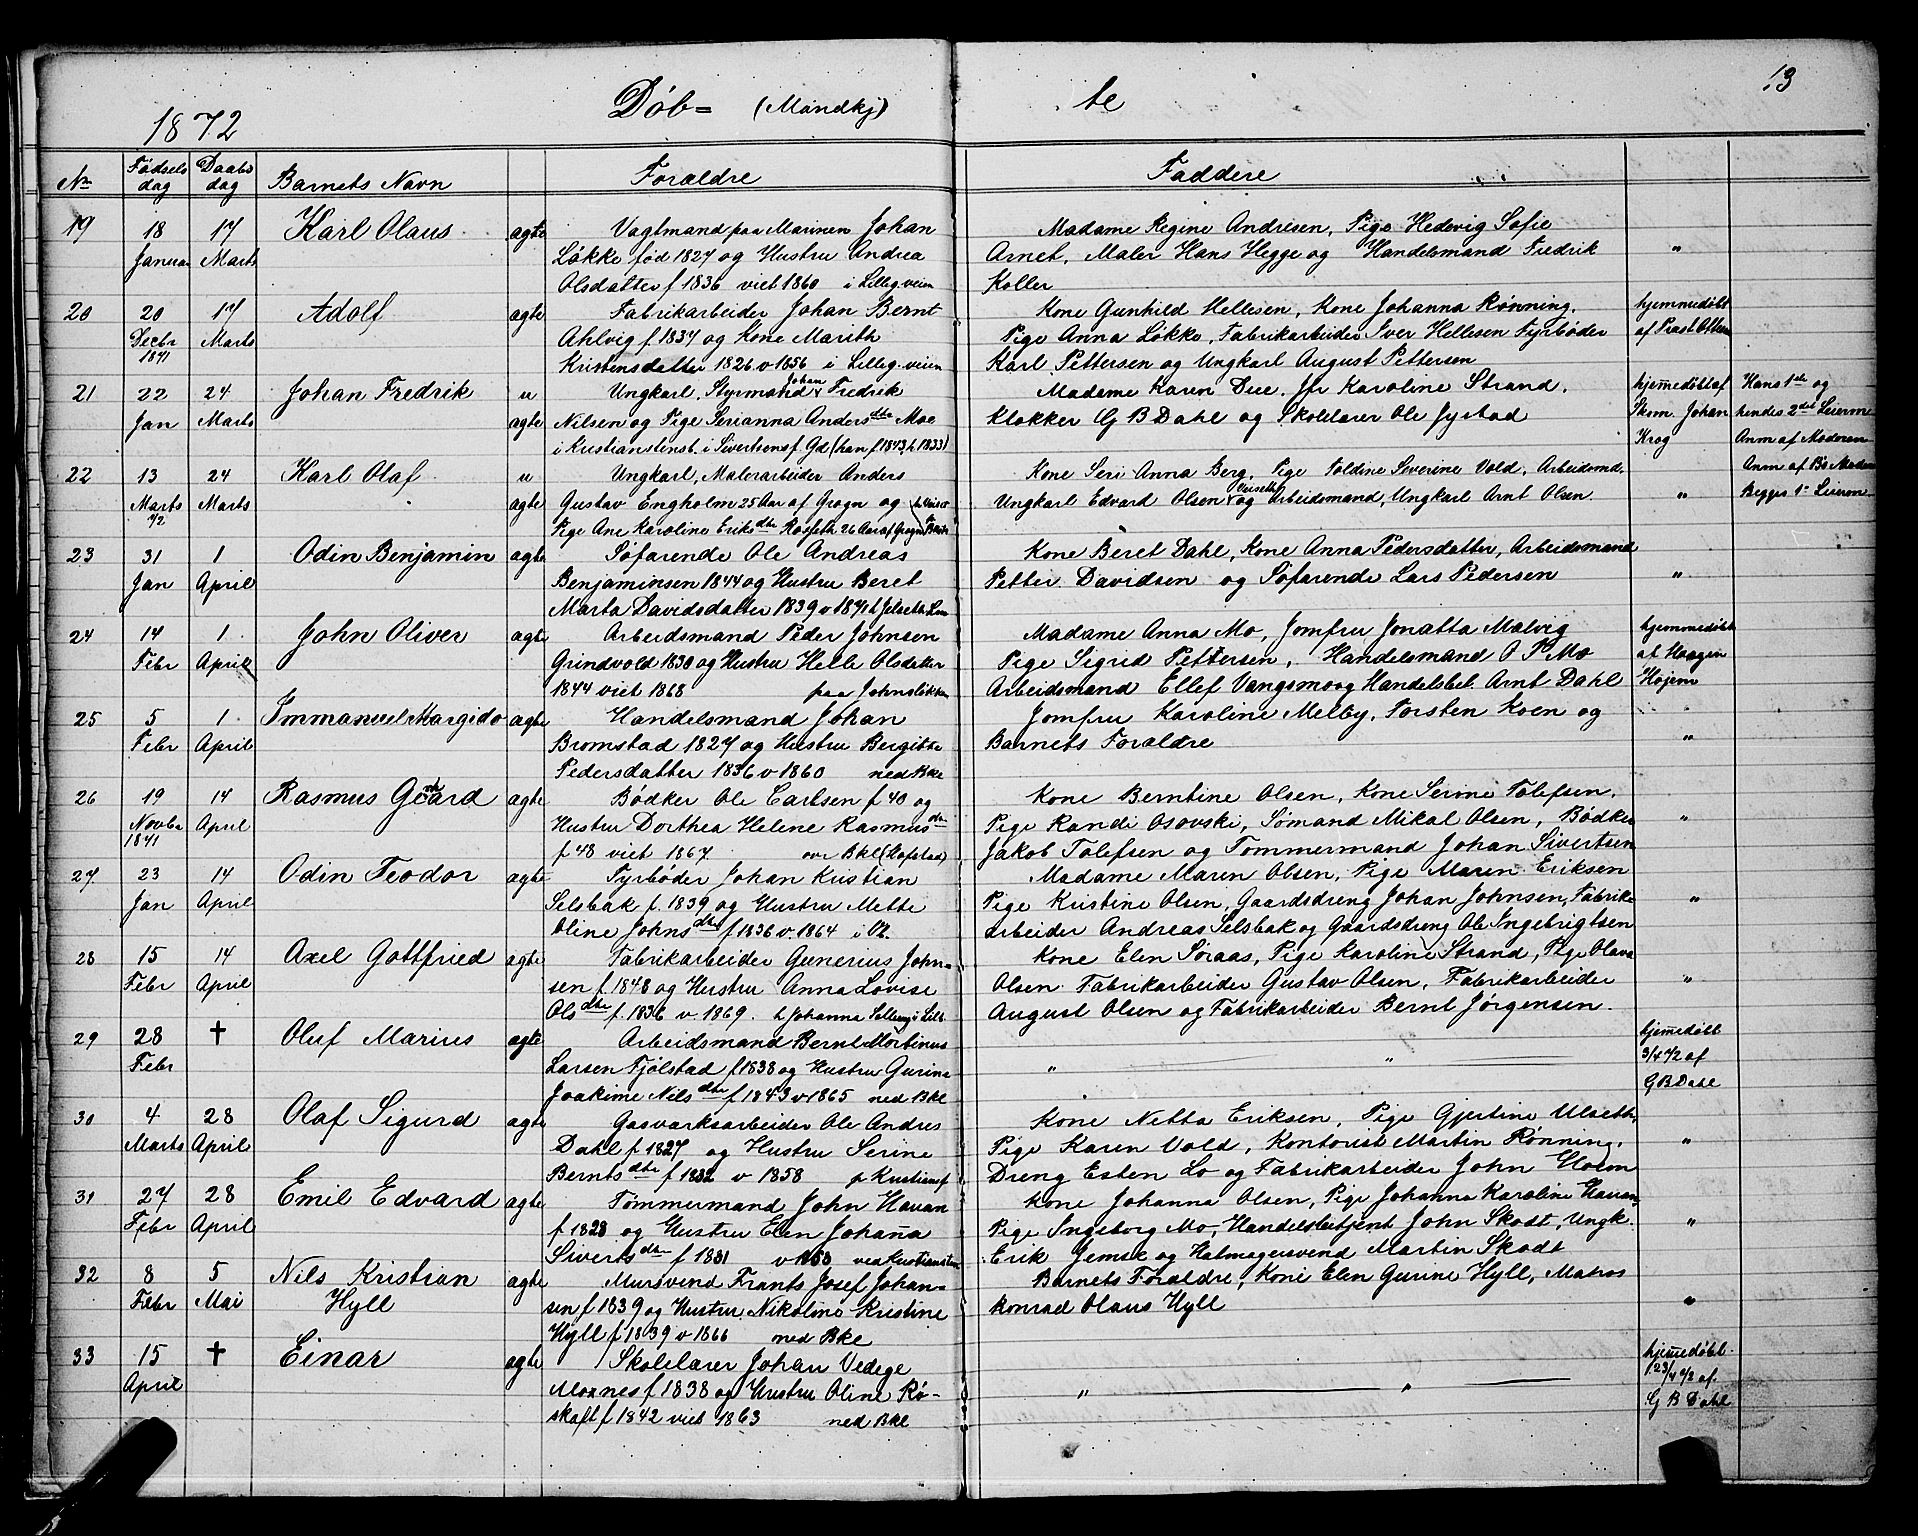 13
1872 Döb= (Mandkj) te
No Fødsels dag Daabs dag Barnets Navn Forældre Faddere
19 18 17 Karl Olaus ægte Vagtmand paa Marinen Johan Madame Regine Andresen, Pige Hedevig Sofie
Januar Marts Løkke fød 1827 og Hustru Andrea Arnet, Maler Hans Hegge og Handelsmand Fredrik "
Olsdatter f 1836 viet 1860 i Lilleg.veien Koller
20 20 17 Adolf ægte Fabrikarbeider Johan Bernt Kone Gunhild Hellesen, Kone Johanna Rønning, hjemmedøbt
Decbr Marts Ahlvig f 1837 og Kone Marith Pige Anna Løkke, Fabrikarbeider Iver Hellesen Fyrbøder af Præst
1871 Kristensdatter 1826 v 1856 i Lilleg.veien Karl Pettersen og Ungkarl August Pettersen
21 22 24 Johan Fredrik u Ungkarl, Styrmand Johan Fredrik Madame Karen Due, Jfr Karoline Strand, hjemedøbt af Hans 1ste og
Jan Marts ægte Nilsen og Pige Serianna Andersdtr Moe Klokker G B Dahl og Skolelærer Ole Jystad Skom. Johan hendes 2det Leierm
i Kristianstenst. i Sivertsens Gd (han f 1843, h 1833) Krog Anm af Moderen
22 13 24 Karl Olaf u Ungkarl, Malerarbeider Anders Kone Seri Anna Berg, Pige Foldine Severine Vold, Arbeidsmd. Anm af
Marts Marts ægte Gustav Engholm 25 Aar af Sogn og Ungkarl Edvard Olsen og Arbeidsmand, Ungkarl Arnt Olsen " Begges 1e Leierm
72 Pige Ane Karoline Eriksdtr Rosseth 26 Aar af Sogn
23 31 1 Odin Benjamin ægte Søfarende Ole Andreas Kone Beret Dahl, Kone Anna Pedersdatter, Arbeidsmand
Jan April Benjaminsen 1844 og Hustru Beret Petter Davidsen og Søfarende Lars Pedersen "
Marta Davidsdatter 1839 v 1871
24 14 1 John Oliver ægte Arbeidsmand Peder Johnsen Madame Anna Mo, Jomfru Jonatta Malvig hjemmedøbt
Febr April Grindvold 1830 og Hustru Helle Olsdatter Pige Sigrid Pettersen, Handelsmand O P Mo af Haagen
1844 viet 1868 paa Johnsløkken Arbeidsmand Ellef Vangsmo og Handelsbet. Arnt Dahl Hojem
25 5 1 Immanuel Margido ægte Handelsmand Johan Jomfru Karoline Melby, Torsten Koen og
Febr April Bromstad 1827 og Hustru Bergitte Barnets Forældre "
Pedersdatter 1836 v 1860 ned Bkl
26 19 14 Rasmus Gerhard ægte Bødker Ole Carlsen f 40 og Kone Berntine Olsen, Kone Serine Tolefsen,
Novbr April Hustru Dorthea Helene Rasmusdtr Pige Randi Osovski, Sømand Mikal Olsen, Bødker "
1871 f 48 viet 1867 ovr Bkl (Hofstad) Jakob Tolefsen og Tømmermand Johan Sivertsen
27 23 14 Odin Teodor ægte Fyrbøder Johan Kristian Madame Maren Olsen, Pige Maren Eriksen
Jan April Selsbak f. 1839 og Hustru Mette Pige Kristine Olsen, Gaardsdreng Johan Johnsen, Fabrik- "
Oline Johnsdtr f 1836 v. 1864 arbeider Andreas Selsbak og Gaardsdreng Ole Ingebrigtsen
28 15 14 Axel Gottfried ægte Fabrikarbeider Gunerius John= Kone Elen Søraas, Pige Karoline Strand, Pige Olava
Febr April sen f 1848 og Hustru Anna Lovise Olsen Fabrikarbeider Gustav Olsen, Fabrikarbeider "
Olsdtr f. 1836 v. 1869. August Olsen og Fabrikarbeider Bernt Jørgensen.
29 28 † Oluf Marius ægte Arbeidsmand Bernt Mortinus hjemedøbt
Febr Larsen Fjølstad f 1838 og Hustru Gurine " " 3/4 72 af
Joakime Nilsdtr f 1843 v 1865 ned Bkl G B Dahl
30 4 28 Olaf Sigurd ægte Gasværksarbeider Ole Andres Kone Netta Eriksen, Pige Gjertine Ulseth,
Marts April Dahl f 1827 og Hustru Serine Pige Karen Vold, Kontorist Martin Rønning, "
Berntsdtr f 1832 v 1858 Dreng Esten Lo og Fabrikarbeider John Holm
31 27 28 Emil Edvard ægte Tømmermand John Havan Kone Johanna Olsen, Pige Johanna Karoline Havan,
Febr April f 1828 og Hustru Elen Johana Pige Ingeborg Mo, Handelsbetjent John Skodt, Ungk. "
Sivertsdtr f 1831 v 1853 ved Kristiansten Erik Jemsk og Hatmagersvend Martin Skodt
32 8 5 Nils Kristian ægte Mursvend Frants Josef Johan= Barnets Forældre, Kone Elen Gurine Hyll, Matros
Febr Mai Hyll sen f 1839 og Hustru Nikoline Kristine Konrad Olaus Hyll "
Hyll f 1839 v 1866 ned Bkl
33 15 † Einar ægte Skolelærer Johan Vedege hjemedøbt
April Moxnes f 1838 og Hustru Oline Rø- " " 23/4 72 af
skaft f 1842 viet 1863 ned Bkl G B Dahl